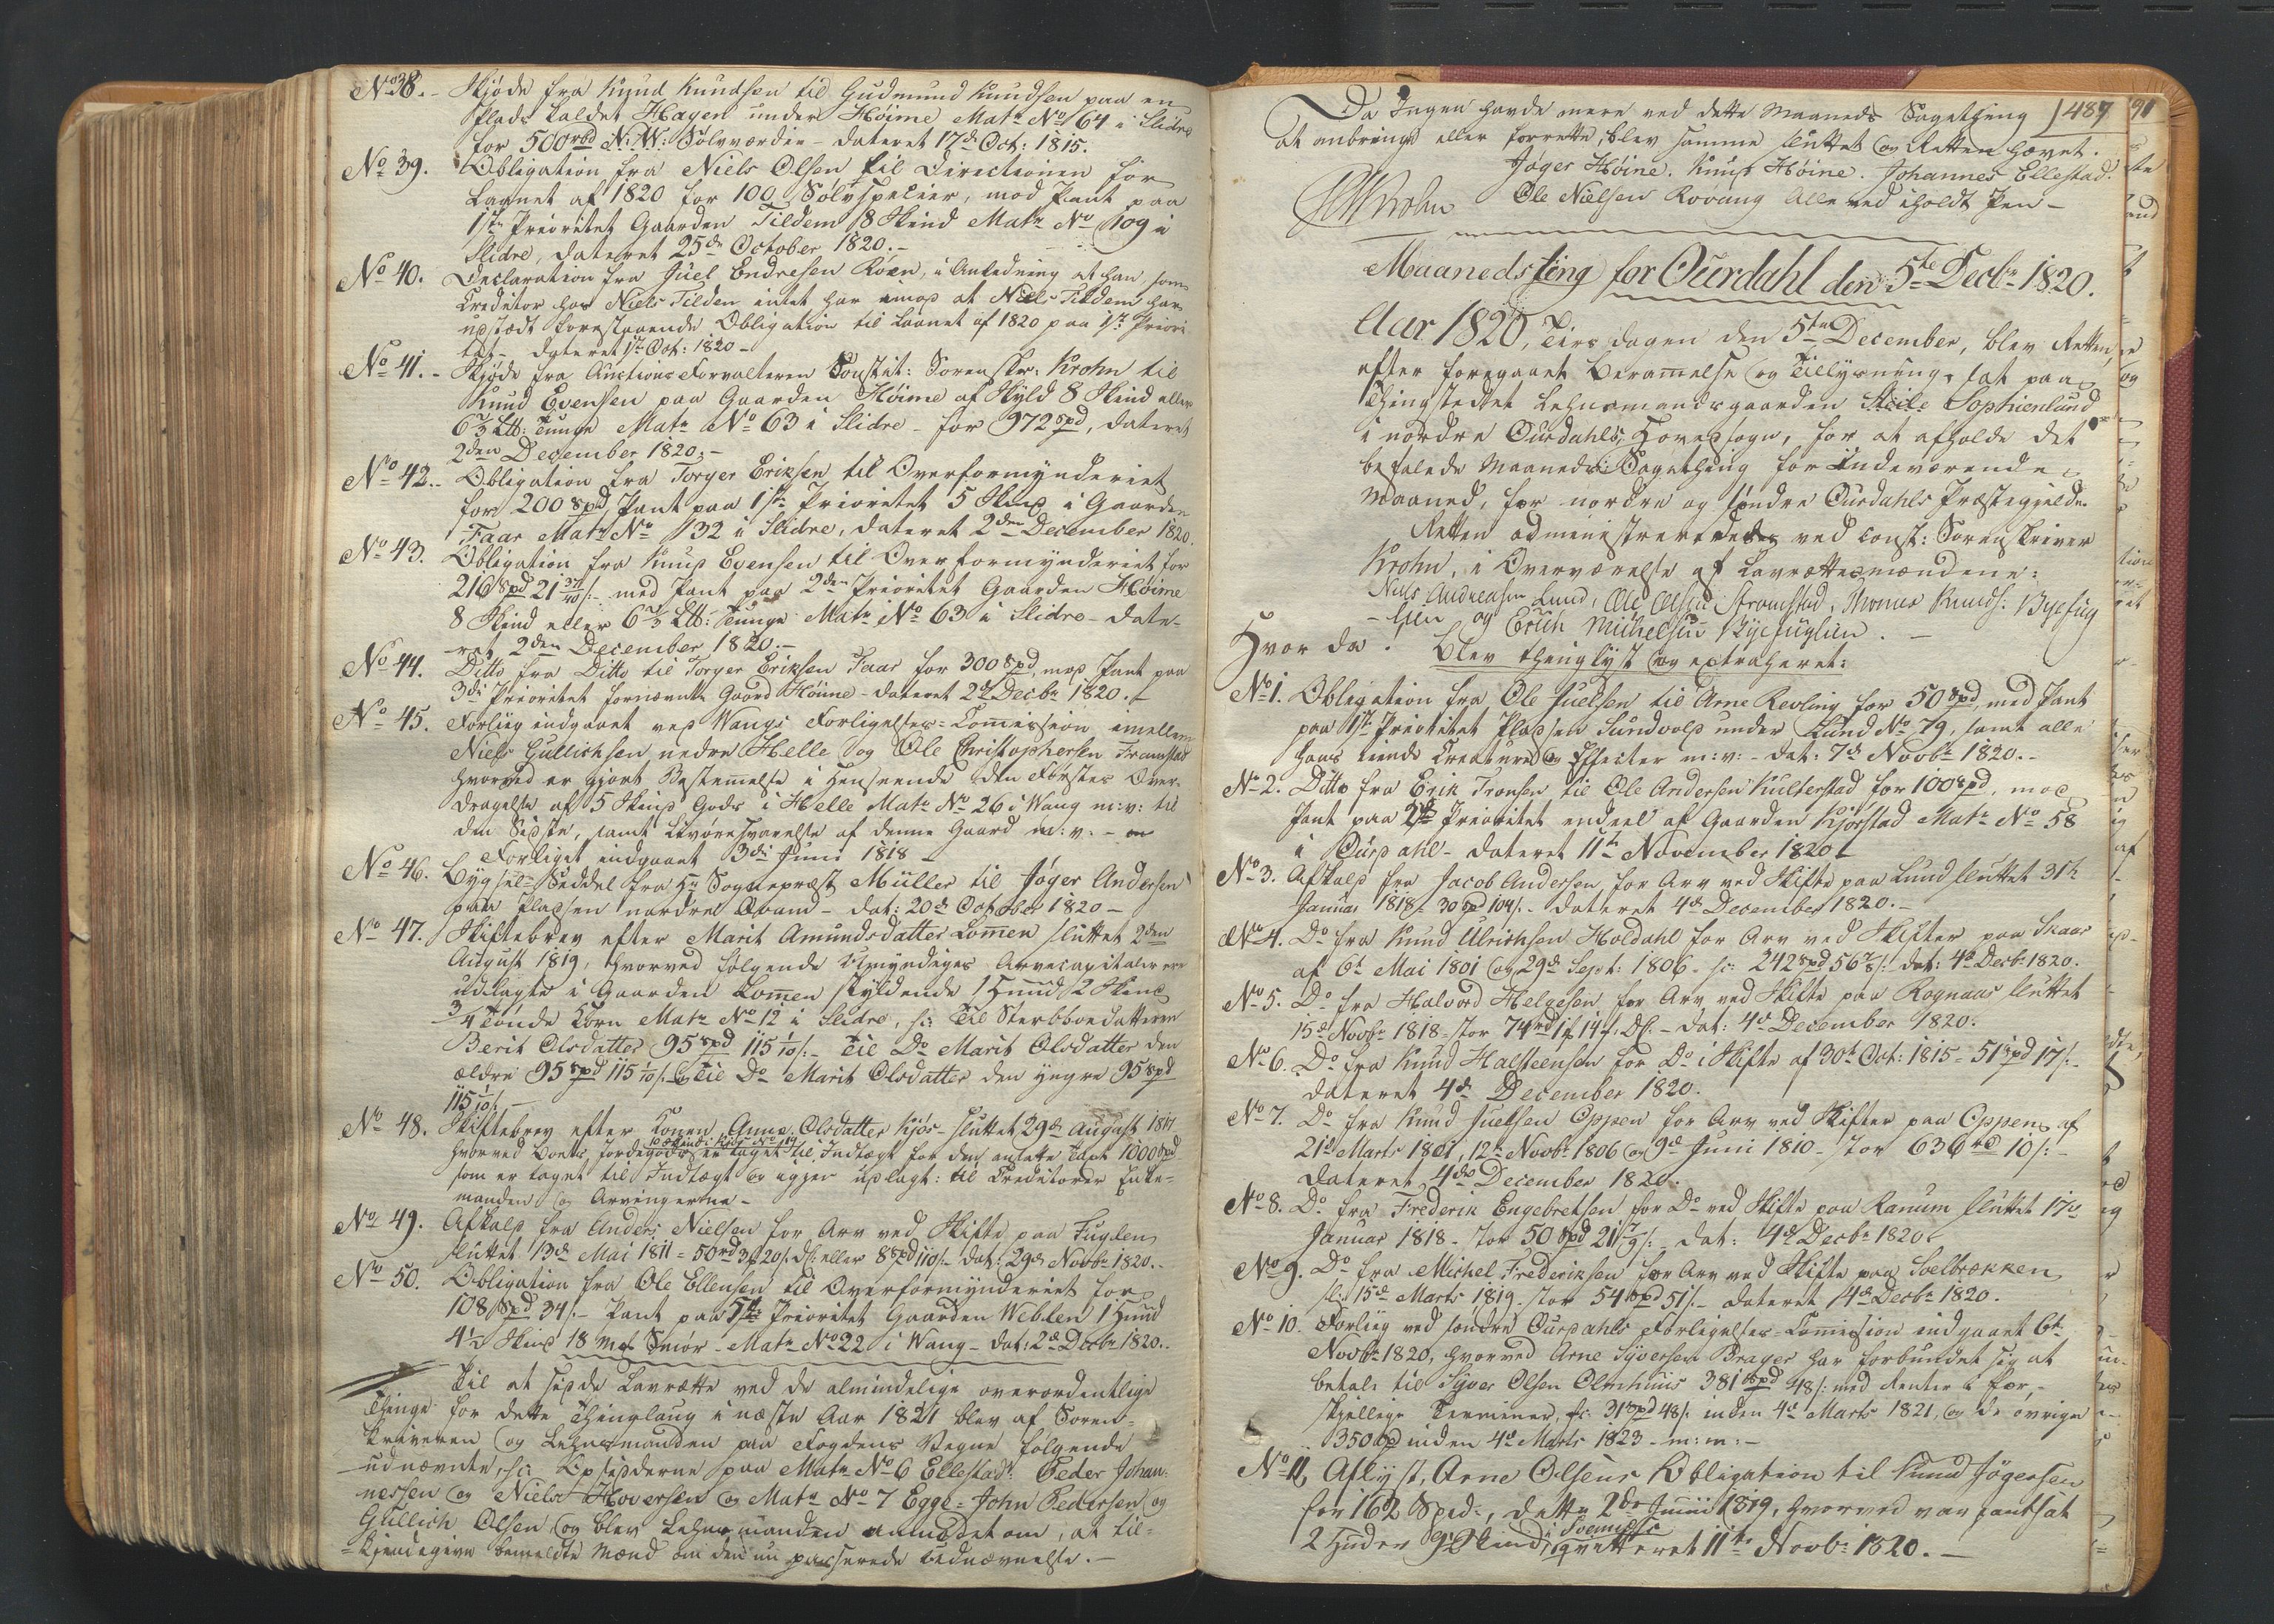 No 38. Skjøde fra Knud Knudsen til Gudmund Knudsen paa en
Plads kaldet Hagen under Høime Matr No 64 i Slidre
for 500 rbd N: W: Sølvværdie - dateret 17de Oct: 1815.
No 39. Obligation fra Niels Olsen til Directionen for
Laanet af 1820 for 100 Sølvspecier, mod Pant paa
1ste Prioritet Gaarden Tildem 8 Skind Matr No 109 i
Slidre, dateret 25de October 1820.-
No 40. Declaration fra Juel Endresen Røen, i Anledning at han som
Creditor hos Niels Tilden intet har imod at Niels Tildem har
udstædt forestaaende Obligation til Laanet af 1820 paa 1ste Priori-
tet - dateret 1ste Oct: 1820 -
No 41. - Skjøde fra Auctions Forvalteren Constit: Sorenskr: Krohn til
Knud Evensen paa Gaarden Høime af Skyld 8 Skind eller
6 2/3 Lb: Tunge Matr No 63 i Slidre - for 972 spd, dateret
2den December 1820.-
No 42.- Obligation fra Torger Eriksen til Overformynderiet
for 200 spd Pant paa 1ste Prioritet 5 Skind i Gaarden
Faar Matr No 132 i Slidre, dateret 2den December 1820.
No 43. Obligation fra Knud Evensen til Overformynderiet for
216 spd 21 37/40 /: - med Pant paa 2den Prioritet Gaarden Høime
8 Skind eller 6 2/3 Lb: Tunge Matr No 63 i Slidre - date-
ret 2den December 1820.-
No 44. Ditto fra Ditto til Torger Eriksen Faar for 300 spd, mod Pant paa
3die Prioritet fornævnte Gaard Høime - dateret 2de Decbr 1820.-
No 45. Forliig indgaaet ved Wangs Forligelses-Commission imellem
Niels Gullichsen nedre Helle og Ole Christophersen Framstad
hvorved er gjort Bestemmelse i Henseende den Førstes Over-
dragelse af 5 Skind Gods i Helle Matr No 26 i Wang m: v: til
den Sidste, samt Livøresvarelse af denne Gaard m: v. -
Forliget indgaaet 3die Juni 1818 -
No 46. Bygsel-Seddel fra Hr Sognepræst Müller til Jøger Andersen
paa Pladsen nordre Qvam - dat: 20de October 1820 -
No 47. Skiftebrev efter Marit Amundsdatter Lomen sluttet 2den
August 1819, hvorved følgende Umyndiges Arvecapitaler ere
udlagte i Gaarden Lomen skyldende 1 Huud 2 Skind
3/4 Tønde Korn Matr No 12 i Slidre, sc: Til Sterbboedatteren
Berit Olsdatter 95 spd 115 1/10 /: - Til Do Marit Olsdatter den
ældre 95 spd 115 1/10 /: og Til Do Marit Olsdatter den yngre 95 spd
115 1/10 /: -
No 48. Skiftebrev efter Konen Anne Olsdatter Kjøs - sluttet 29de August 1811
hvorved Boets Jordegods er taget til Indtægt for den ansatte Taxt 1000 spd
som er taget til Indtægt og igjen udlagt: til Creditorer Enke-
manden og Arvingerne -
No 49. Afkald fra Anders Nielsen for Arv ved Skifte paa Fuglen
sluttet 13de Mai 1811 = 50 rd 3 # 20 /: DC: eller 8 spd 110 /: - dat: 29de Novbr 1820.-
No 50. Obligation fra Ole Ellensen til Overformynderiet for
108 spd 34 /: - Pant paa 5te Prioritet Gaarden Weblen 1 Huud
4 1/2 Skind 18 mk Smør - Matr No 22 i Wang - dat: 2de Decbr 1820..
Til at sidde Lavrette ved de almindelige overordentlige
Thinge for dette Thinglaug i næste Aar 1821 blev af Soren-
skriveren og Lehnsmanden paa Fogdens Vegne følgende
udnævnte, sc: Opsidderne paa Matr No 6 Ellestad: Peder Johan-
nessen og Niels Hoversen og Matr No 7 Egge: John Pedersen og
Gullich Olsen, og blev Lehnsmanden anmodet om, at til-
kjendegive bemeldte Mænd om den nu passerede Udnævnelse.-
487
Da Ingen havde mere ved dette Maaneds Sagething
at anbringe eller forrette, blev samme sluttet og Retten hævet.
Jøger Høine. Knud Høine. Johannes Ellestad.
Krohn Ole Nielsen Rovang Alle ved iholdt Pen -
Maanedsting for Ourdahl den 5te Decbr 1820.
Aar 1820, Tirsdagen den 5te December, blev Retten,
efter foregaaet Berammelse og Tillysning, sat paa
Thingstedet Lehnsmandsgaarden Steile Sophienlund
i nordre Ourdahls Hovedsogn, for at afholde det
befalede Maaneds Sagething for indeværende
Maaned, for nordre og søndre Ourdahls Præstegjelde.
Retten administreredes ved const: Sorenskriver
Krohn, i Overværelse af Lavrettesmændene:
Niels Andreasen Lund, Ole Olsen Stromstad, Thomes Knuds: Byefug
- lien og Erich Michelsen Byefuglien. -
Hvor da: Blev thinglyst og extraheret:
No 1. Obligation fra Ole Juelsen til Arne Revling for 50 spd, med Pant
paa 1ste Prioritet Pladsen Sundvold under Lund No 79, samt alle
hans eiende Creature og Effecter m: v: - dat: 7de Novbr 1820.-
No 2. Ditto fra Erik Tronsen til Ole Andersen Kulterstad for 100 spd, mod
Pant paa 2de Prioritet endeel af Gaarden Kjørstad Matr No 58
i Ourdahl - dateret 11te November 1820 -
No 3. Afkald fra Jacob Andersen for Arv ved Skifte paa Lund sluttet 31te
Januar 1818 = 30 spd 104 /: - dateret 4de December 1820.-
No 4. Do fra Knud Ulrichsen Holdahl for Arv ved Skifter paa Skaar
af 6te Mai 1801 og 29de Sept: 1806 - sc: 242 spd 56 7/8 /: dat: 4de Decbr 1820.
No 5. Do fra Halvord Helgesen for Arv ved Skifte paa Rognaas sluttet
15de Novbr 1818 - stor 74 rd 1 # 14 /: DC: - dat: 4de December 1820.
No 6. Do fra Knud Halsteensen for Do i Skifte af 30te Oct: 1815 - 51 spd 17 /: -
dateret 4de December 1820.
No 7. Do fra Knud Juelsen Oppen for Arv ved Skifter paa Oppen af
21de Marts 1801, 12te Novbr 1806 og 9de Juni 1810 - stor 636 rd 10 /: -
dateret 4de December 1820.
No 8. Do fra Frederik Engebretsen for Do ved Skifte paa Ranum sluttet 17de
Januar 1818 - stor 50 spd 21 7/9 /: - dat: 4de Decbr 1820.
No 9. Do fra Michel Frederiksen for Arv ved Skifte paa Soelbrekken
sl: 15de Marts 1819 - stor 54 spd 51 /: - dateret 4de Decbr 1820.
No 10. Forliig ved søndre Ourdahls Forligelses-Comission indgaaet 6te
Novbr 1820, hvorved Arne Syversen Brager har forbundet sig at
betale til Syver Olsen Olmhuus 381 spd 48 /: med Renter i for-
skjellige Terminer, sc: 31 spd 48 /: inden 4de Marts 1821, og de øvrige
350 spd inden 4de Marts 1823 - m: m: -
No 11, Aflyst, Arne Olsens Obligation til Knud Jøgersen
for 162 Spd:, dat: 2de Junii 1819, hvorved var pantsat
2 Huder 9 Skind i qvitteret 11te Novbr 1820. -